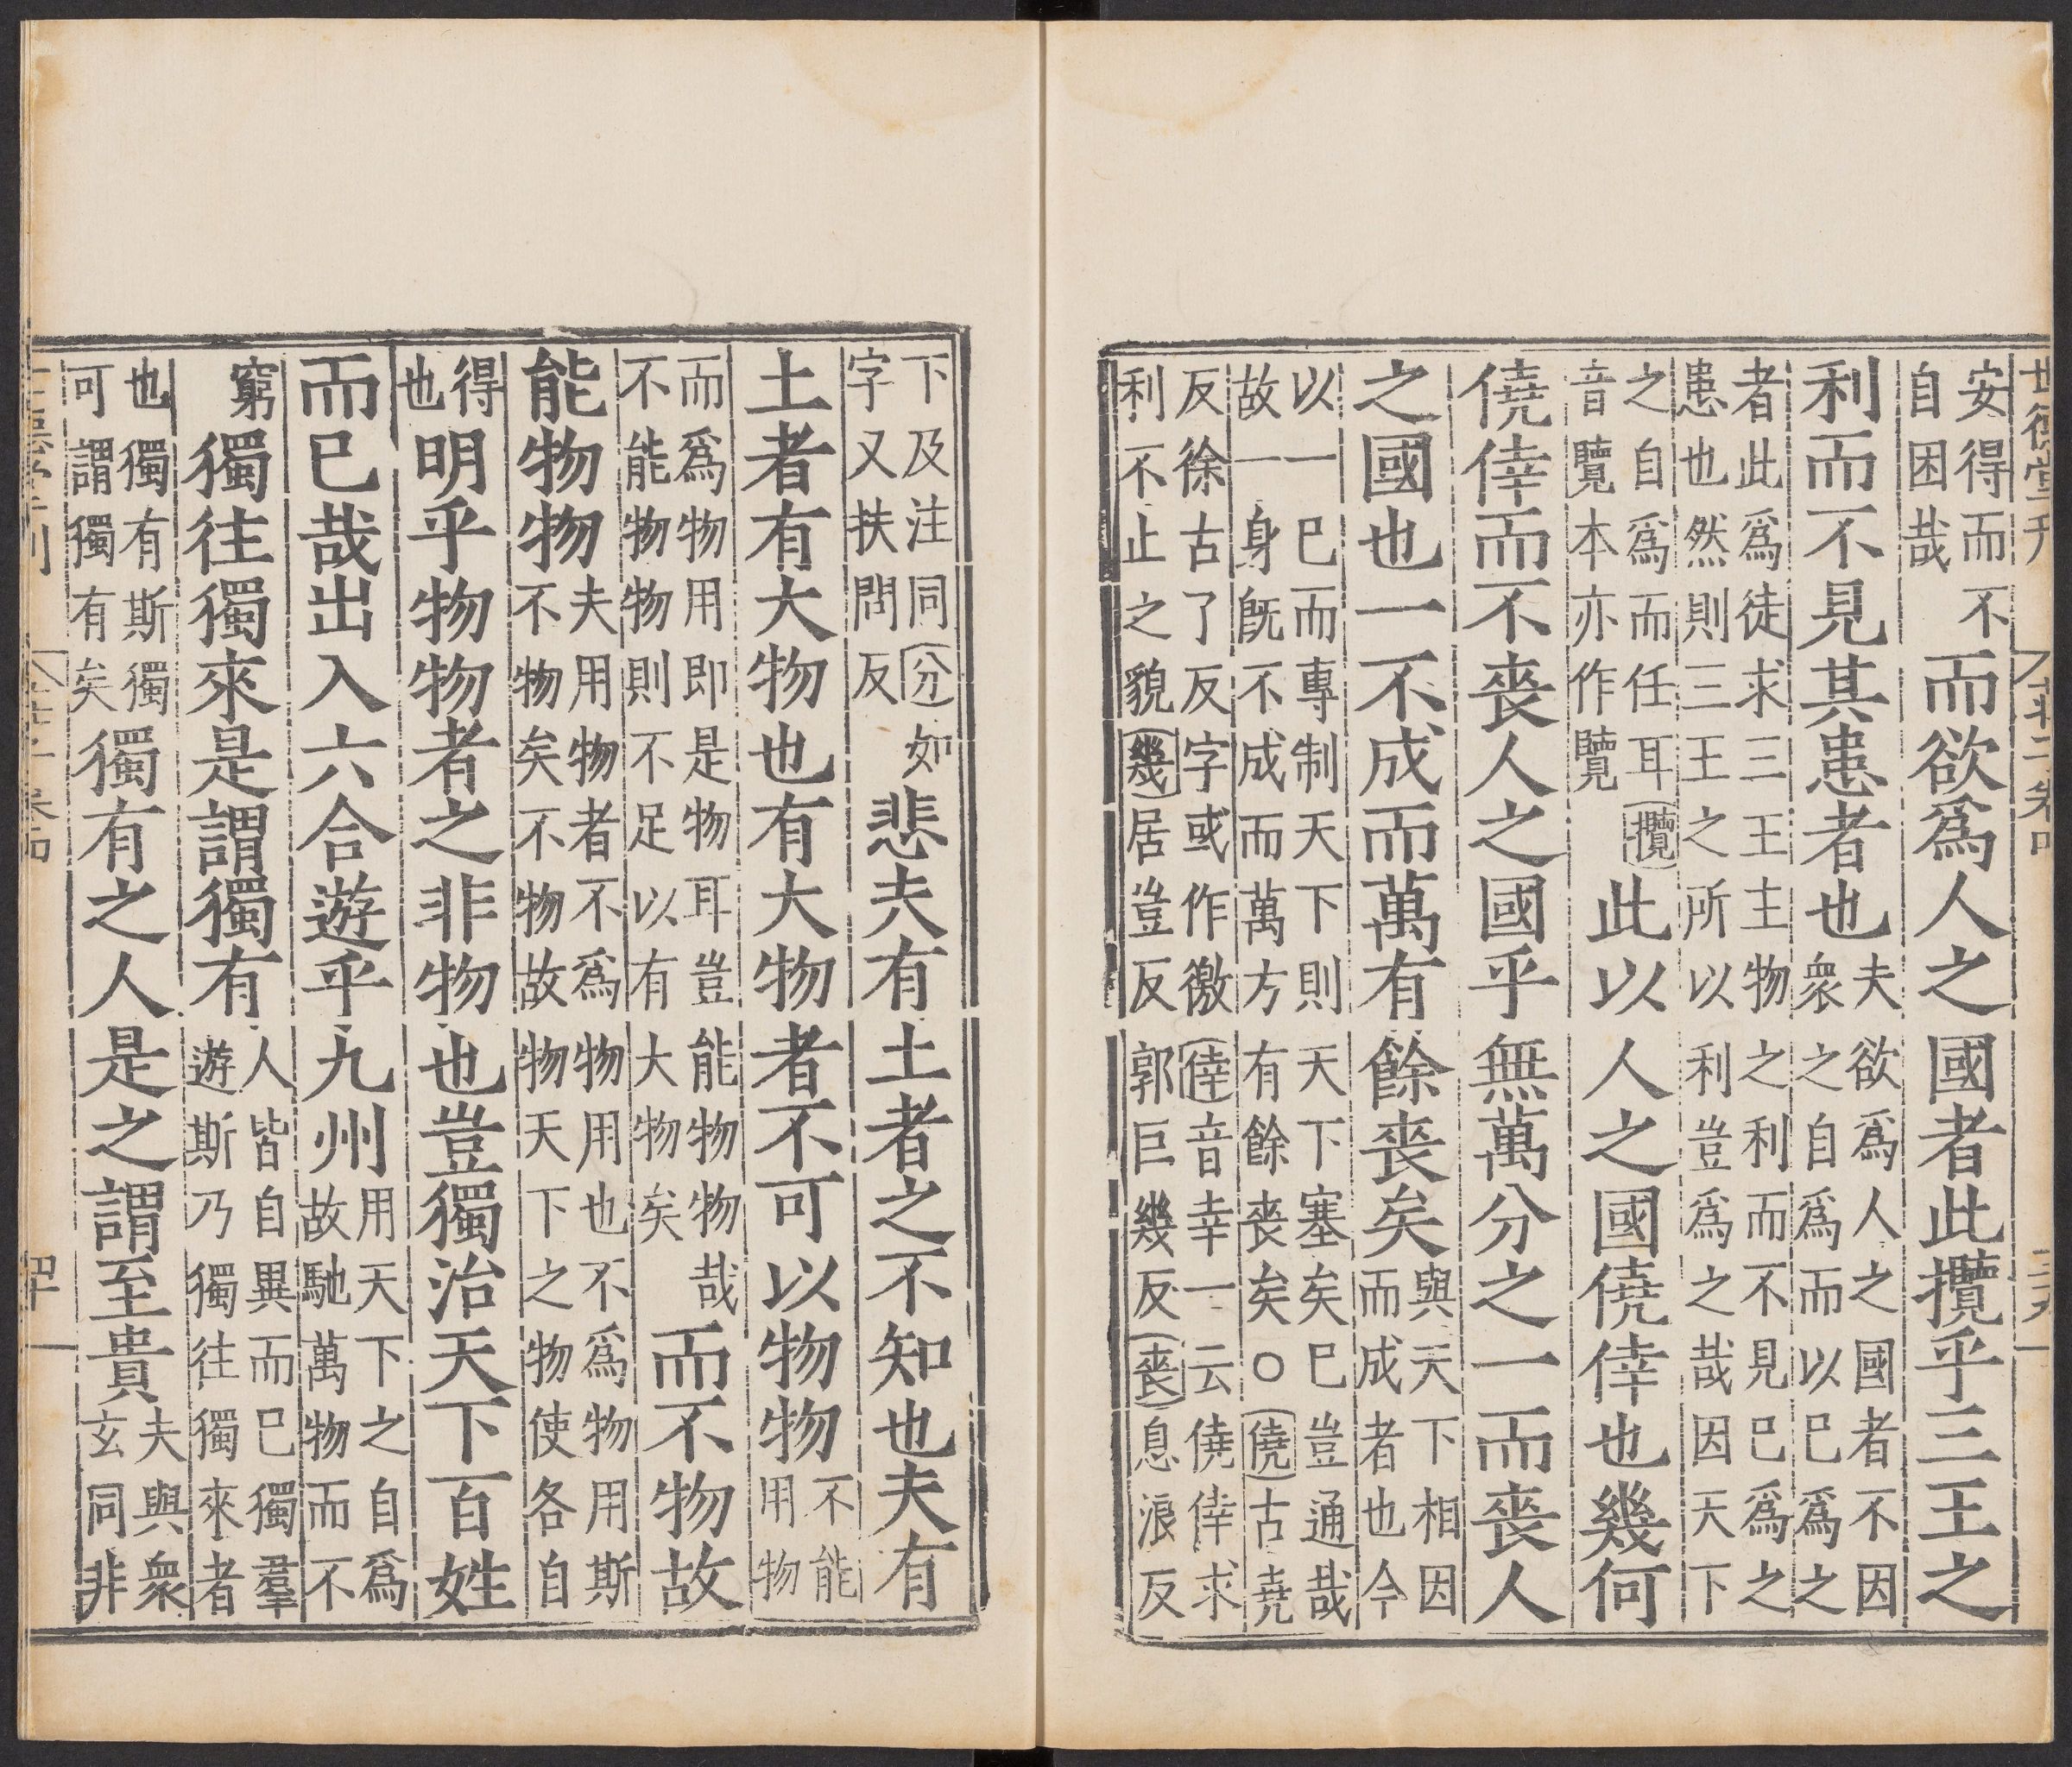 世德堂刊 莊子卷四 三九
安得而不自困哉而欲爲人之國者此攬乎三王之
利而不見其患者也夫欲爲人之國者不因衆之自爲而以巳爲之
者此爲徒求三王主物之利而不見巳爲之患也然則三王之所以利豈爲之哉因天下
之自爲而任耳攬音覽本亦作覽此以人之國僥倖也幾何
僥倖而不喪人之國乎無萬分之一而喪人
之國也一不成而萬有餘喪矣與天下相因而成者也今
以一巳而專制天下則天下塞矣巳豈通哉故一身旣不成而萬方有餘喪矣○僥古堯
反徐古了反字或作徼倖音幸一云僥倖求利不止之貌幾居豈反郭巨幾反喪息浪反
下及注同分如字又扶問反悲夫有土者之不知也夫有
土者有大物也有大物者不可以物物不能用物
而爲物用即是物耳豈能物物哉不能物物則不足以有大物矣而不物故
能物物夫用物者不爲物用也不爲物用斯不物矣不物故物天下之物使各自
得也明乎物物者之非物也豈獨治天下百姓
而巳哉出入六合遊乎九州用天下之自爲故馳萬物而不
窮獨往獨來是謂獨有人皆自異而巳獨羣遊斯乃獨往獨來者
也獨有斯獨可謂獨有矣獨有之人是之謂至貴夫與衆玄同非
四十